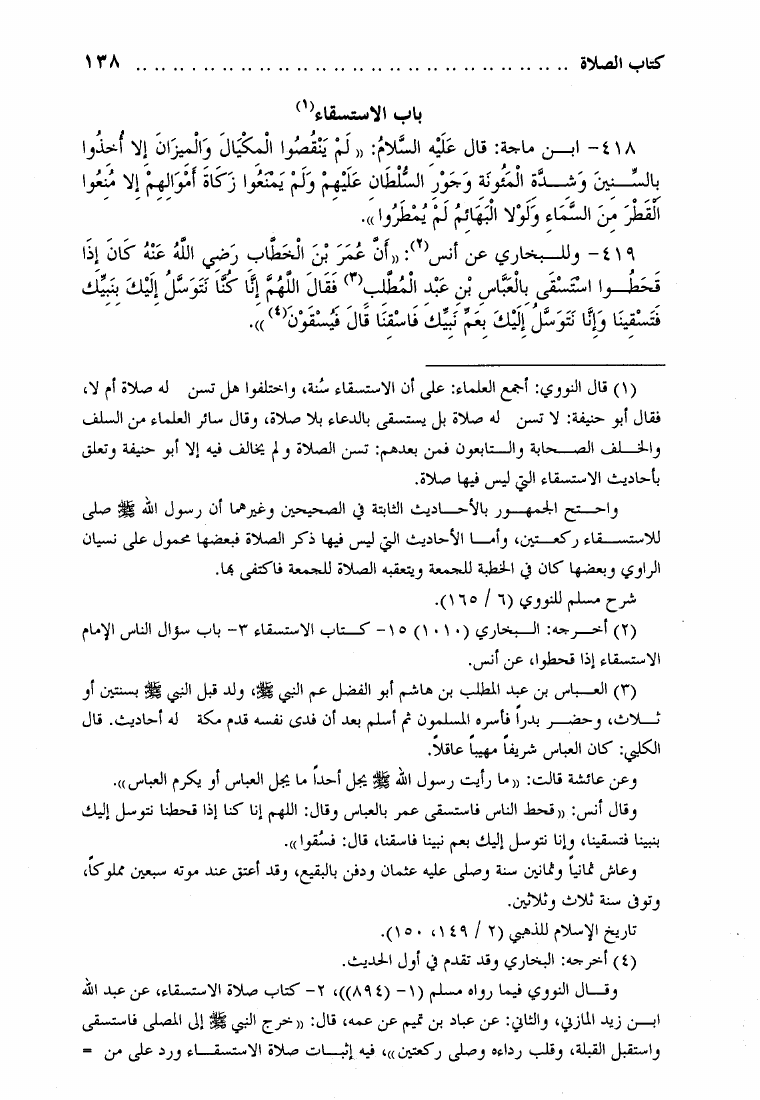 كتاب الصلاة .................................................. ١٣٨
باب الاستسقاء(١)
٤١٨- ابن ماجة: قال عَلَيْهِ السَّلامُ: «لَمْ يَنْقُصُوا الْمِكْيَالَ وَالْمِيزَانَ إلا أُخِذُوا
بِالسِّنِينَ وَشِدَّةِ الْمَئُونَةِ وَجَوْرِ السُّلْطَانِ عَلَيْهِمْ وَلَمْ يَمْنَعُوا زَكَاةَ أَمْوَالِهِمْ إلا مُنِعُوا
الْقَطْرَ مِنَ السَّمَاءِ وَلَوْلا الْبَهَائِمُ لَمْ يُمْطَرُوا».
٤١٩- وللبخاري عن أنس(٢): «أَنَّ عُمَرَ بْنَ الْخَطَّابِ رَضِي اللَّهُ عَنْهُ كَانَ إِذَا
قَحَطُوا اسْتَسْقَى بِالْعَبَّاسِ بْنِ عَبْدِ الْمُطَّلِبِ(٣) فَقَالَ اللَّهُمَّ إِنَّا كُنَّا نَتَوَسَّلُ إِلَيْكَ بِنَبِيِّكَ
فَتَسْقِينَا وَإِنَّا نَتَوَسَّلُ إِلَيْكَ بِعَمِّ نَبِيِّكَ فَاسْقِنَا قَالَ فَيُسْقَوْنَ(٤)».
(١) قال النووي: أجمع العلماء: على أن الاستسقاء سُنة، واختلفوا هل تسن له صلاة أم لا،
فقال أبو حنيفة: لا تسن له صلاة بل يستسقى بالدعاء بلا صلاة، وقال سائر العلماء من السلف
والخلف الصحابة والتابعون فمن بعدهم: تسن الصلاة و لم يخالف فيه إلا أبو حنيفة وتعلق
بأحاديث الاستسقاء التي ليس فيها صلاة.
واحتج الجمهور بالأحاديث الثابتة في الصحيحين وغيرهما أن رسول الله ﷺ صلى
للاستسقاء ركعتين، وأما الأحاديث التي ليس فيها ذكر الصلاة فبعضها محمول على نسيان
الراوي وبعضها كان في الخطبة للجمعة ويتعقبه الصلاة للجمعة فاكتفى بها.
شرح مسلم للنووي (٦ / ١٦٥).
(٢) أخرجه: البخاري (١٠١٠) ١٥- كتاب الاستسقاء ٣- باب سؤال الناس الإمام
الاستسقاء إذا قحطوا، عن أنس.
(٣) العباس بن عبد المطلب بن هاشم أبو الفضل عم النبي ﷺ، ولد قبل النبي ﷺ بسنتين أو
ثلاث، وحضر بدراً فأسره المسلمون ثم أسلم بعد أن فدى نفسه قدم مكة له أحاديث. قال
الكلبي: كان العباس شريفاً مهيباً عاقلاً.
وعن عائشة قالت: «ما رأيت رسول الله ﷺ يجل أحداً ما يجل العباس أو يكرم العباس».
وقال أنس: «قحط الناس فاستسقى عمر بالعباس وقال: اللهم إنا كنا إذا قحطنا نتوسل إليك
بنبينا فتسقينا، وإنا نتوسل إليك بعم نبينا فاسقنا، قال: فسُقوا».
وعاش ثمانياً وثمانين سنة وصلى عليه عثمان ودفن بالبقيع، وقد أعتق عند موته سبعين مملوكاً،
وتوفى سنة ثلاث وثلاثين.
تاريخ الإسلام للذهبي (٢ / ١٤٩، ١٥٠).
(٤) أخرجه: البخاري وقد تقدم في أول الحديث.
وقال النووي فيما رواه مسلم (١- (٨٩٤))، ٢- كتاب صلاة الاستسقاء، عن عبد الله
ابن زيد المازني، والثاني: عن عباد بن تميم عن عمه، قال: «خرج النبي ﷺ إلى المصلى فاستسقى
واستقبل القبلة، وقلب رداءه وصلى ركعتين»، فيه إثبات صلاة الاستسقاء ورد على من =